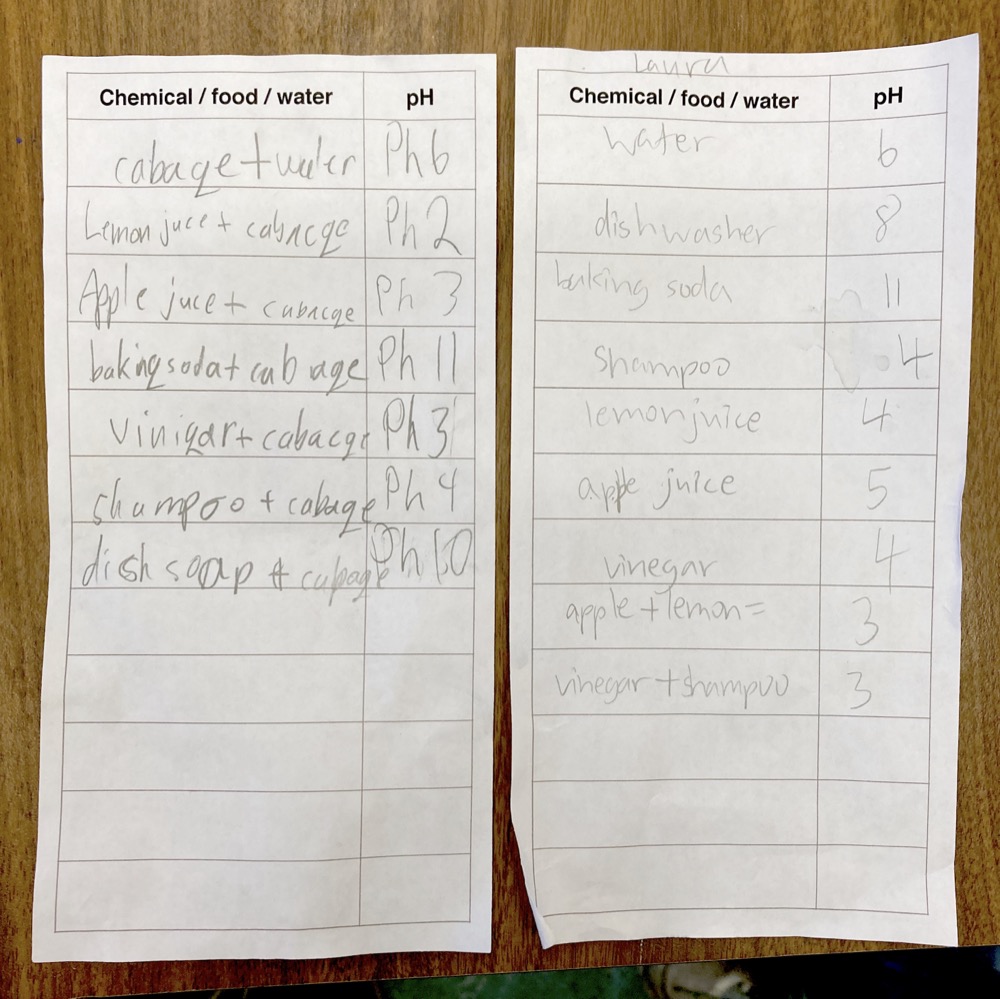 Chemical / food / water pH
cabage + water Ph 6
Lemon juce + cabacge Ph 2
Apple juce + cabacge Ph 3
baking soda + cabage Ph 11
vinigar + cabacge Ph 3
shampoo + cabage Ph 4
dish soap + cabage Ph 10
Laura
Chemical / food / water pH
water 6
dishwasher 8
baking soda 11
shampoo 4
lemonjuice 4
apple juice 5
vinegar 4
apple + lemon = 3
vinegar + shampoo 3